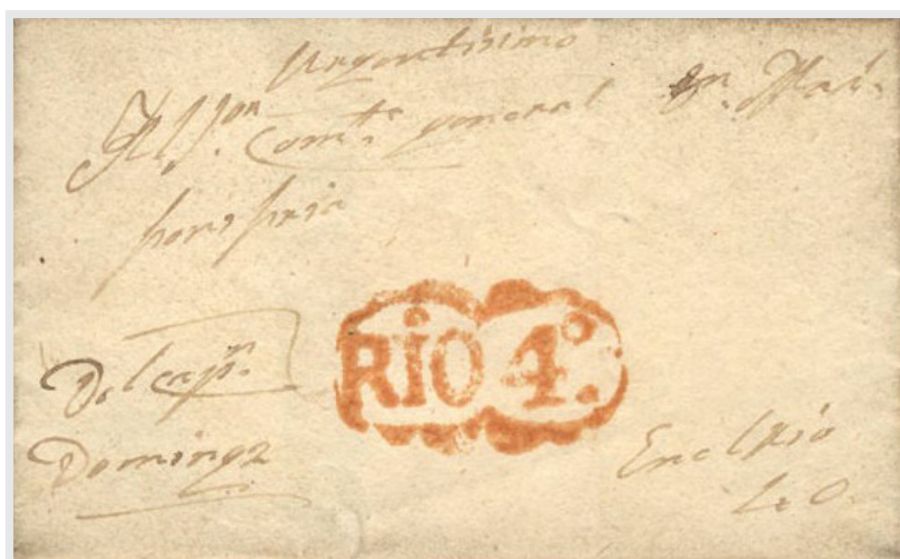 Urgentisimo
Al Sor. Comte. general
RÍO 4º.
Del capn.
Domingz
En el Rio
4o.